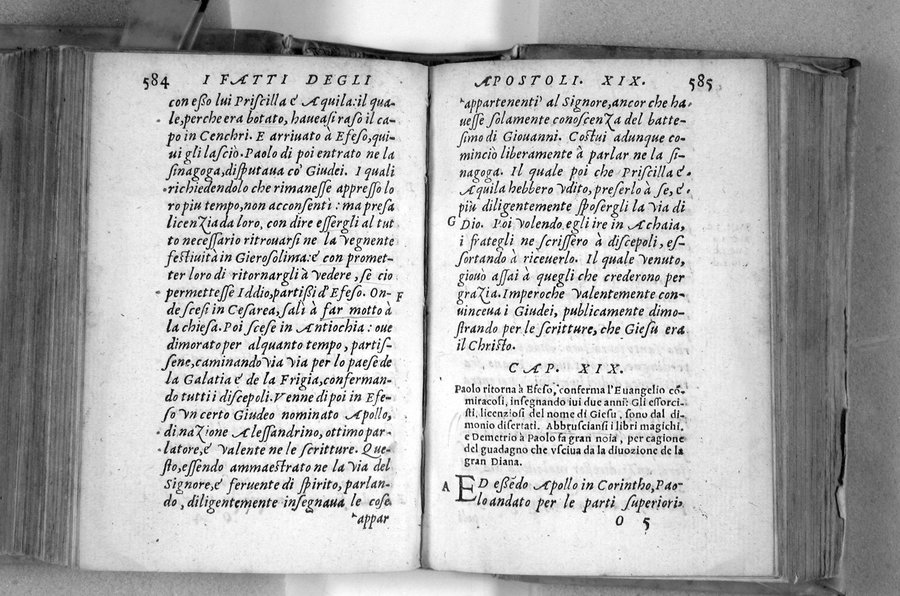 584 I FATTI DEGLI
con eßo lui Priscilla é Aquila: il qua-
le, perche era botato, haueasi raſo il ca-
po in Cenchri. E arriuato à Efeſo, qui-
ui gli laſciò. Paolo di poi entrato ne la
ſinagoga, diſputaua cò Giudei. I quali
richiedendolo che rimaneſſe appreſſo lo
ro piu tempo, non acconſenti: ma preſa
licenzia da loro, con dire eſſergli al tut
to neceſſario ritrouarſi ne la vegnente
feſtiuita in Gieroſolima: é con promet-
ter loro di ritornargli à vedere, ſe cio
permetteſſe Iddio, partißi d'Efeſo. On-
F
de sceſi in Ceſarea, ſali à far motto à
la chieſa. Poi sceſe in Antiochia: oue
dimorato per alquanto tempo, partiſ-
ſene, caminando via via per lo paeſe de
la Galatia é de la Frigia, conferman-
do tutti i diſcepoli. Venne di poi in Efe-
ſo vn certo Giudeo nominato Apollo,
di nazione Aleſſandrino, ottimo par-
latore, é valente ne le ſcritture. Que-
ſto, eſſendo ammaeſtrato ne la via del
Signore, é feruente di ſpirito, parlan-
do, diligentemente inſegnaua le coſe
appar
APOSTOLI. XIX. 585
appartenenti al Signore, ancor che ha-
ueſſe ſolamente conoſcenza del batte-
ſimo di Giouanni. Coſtui adunque co-
minciò liberamente à parlar ne la ſi-
nagoga. Il quale poi che Priſcilla é
Aquila hebbero vdito, preſerlo à ſe, é
più diligentemente ſpoſergli la via di
G
Dio. Poi volendo egli ire in Achaia,
i frategli ne ſcriſſero à diſcepoli, eſ-
ſortando à riceuerlo. Il quale venuto,
giouò aſſai à quegli che crederono per
grazia. Imperoche valentemente con-
uinceua i Giudei, publicamente dimo-
ſtrando per le ſcritture, che Gieſu era
il Chriſto.
CAP. XIX.
Paolo ritorna à Efeſo, conferma l'Euangelio cō
miracoli, inſegnando iui due anni: Gli eſſorci-
ſti, licenzioſi del nome di Gieſu, ſono dal di-
monio diſertati. Abbruſcianſi i libri magichi.
e Demetrio à Paolo fa gran noia, per cagione
del guadagno che vſciua da la diuozione de la
gran Diana.
A
ED eßēdo Apollo in Corintho, Pao-
lo andato per le parti ſuperiori,
O 5